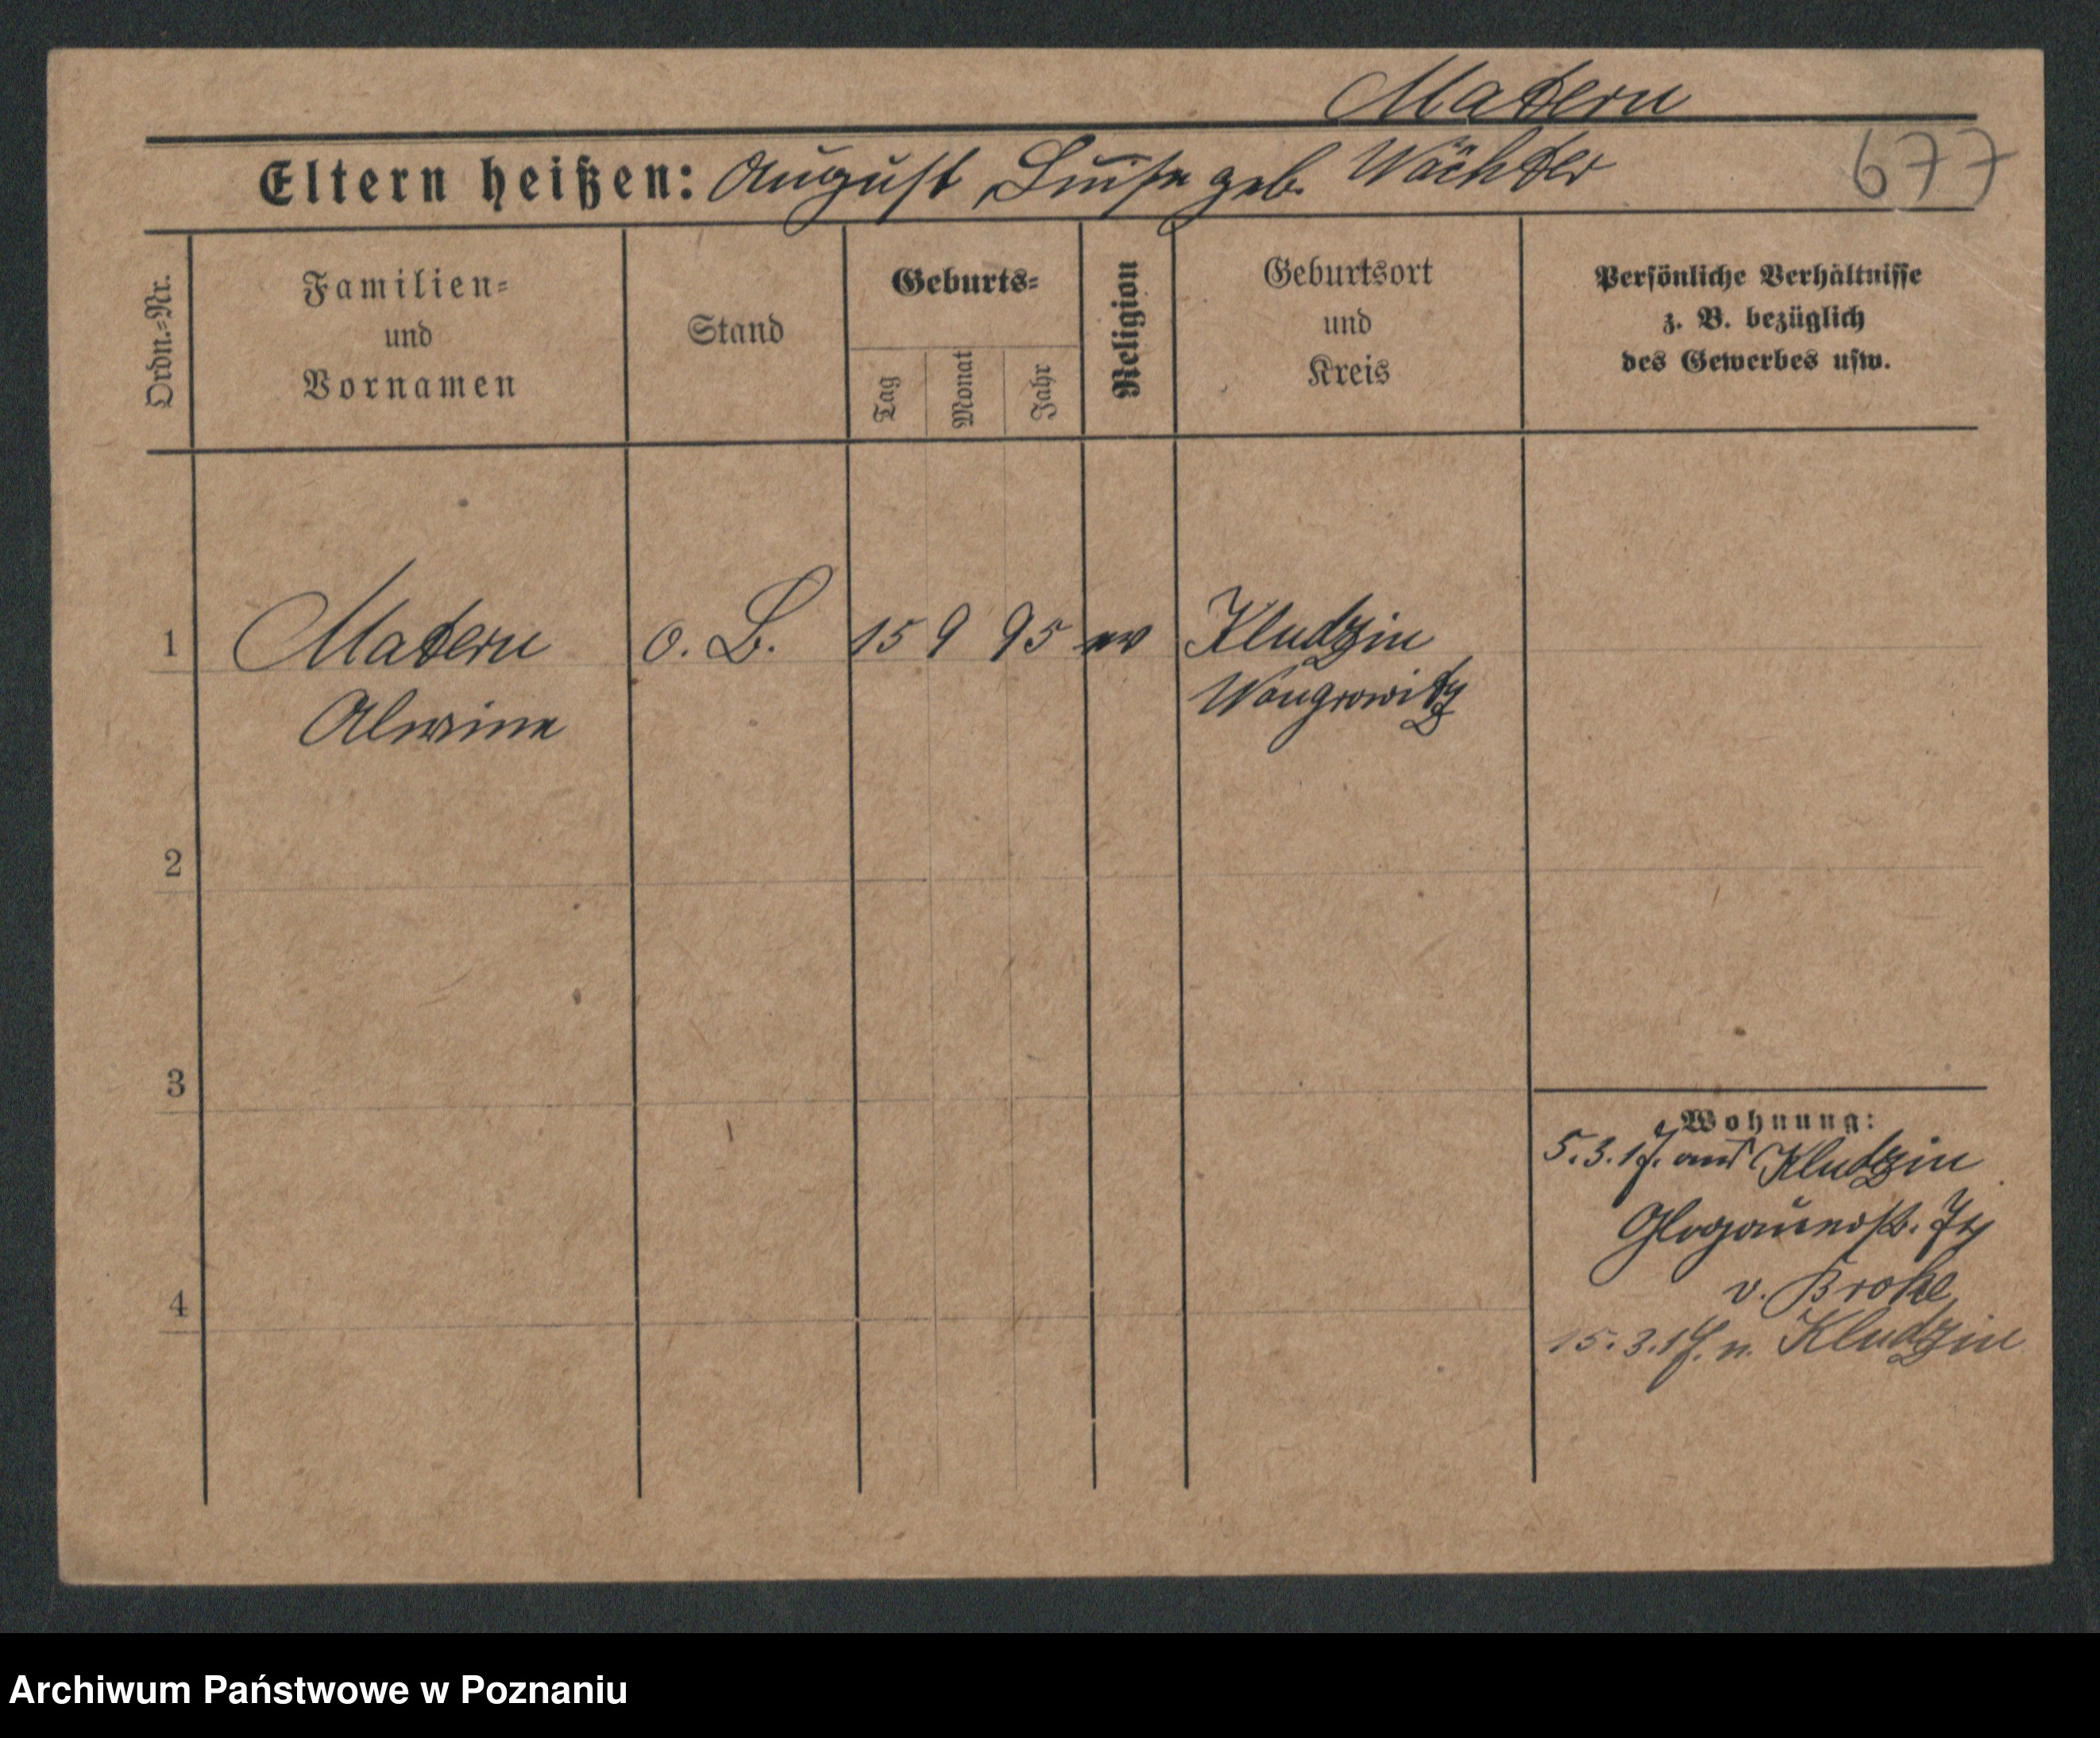 Matern
677
Eltern heißen: August, Luise geb. Wächter
Ordn.=Nr.
Familien=
und
Vornamen
Stand
Geburts=
Tag
Monat
Jahr
Religion
Geburtsort
und
Kreis
Persönliche Verhältnisse
z. B. bezüglich
des Gewerbes usw.
1
Matern
Alwine
o. B.
15 9 95
ev
Kludzin
Wongrowitz
2
3
4
Wohnung:
5.3.17. aus Kludzin
Glogauerstr.
v. Broke
15.3.17. n. Kludzin
Archiwum Państwowe w Poznaniu